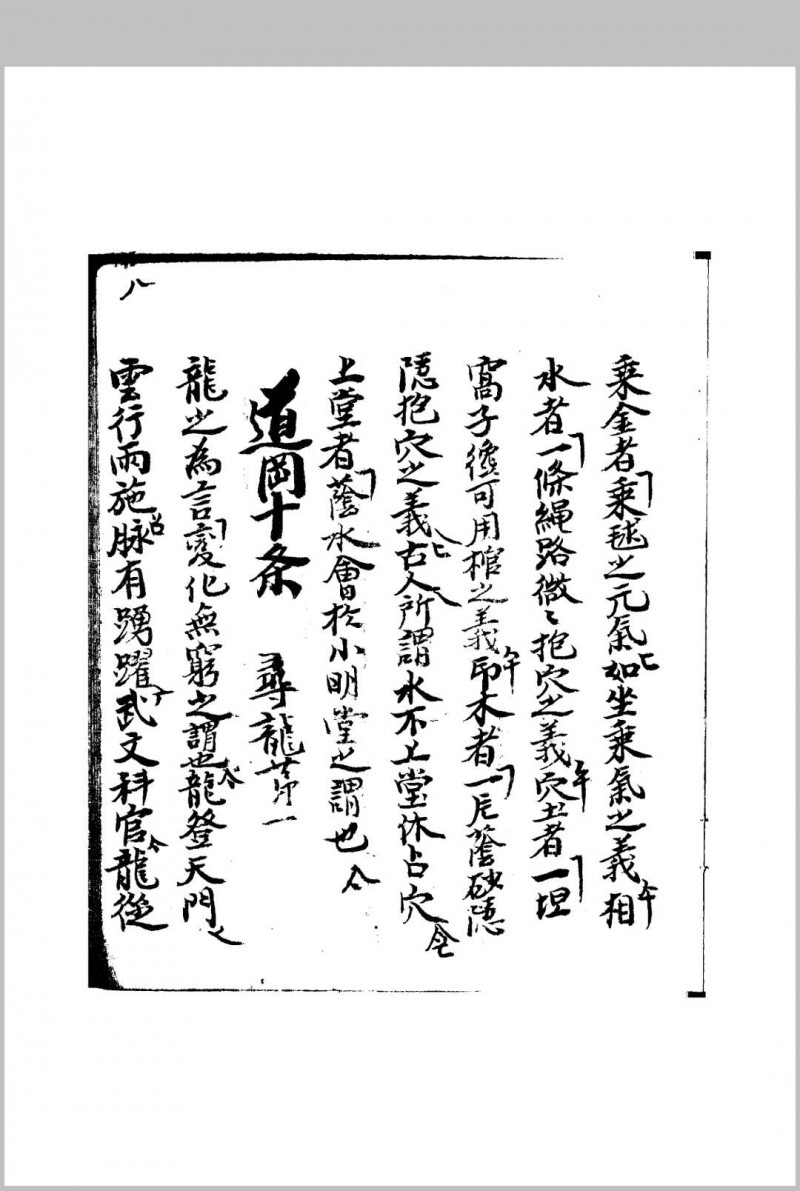 乗金者乗毬之元氣如坐乗氣之義相
水者一條繩路微〻抱穴之義穴土者一坦
窩子纔可用棺之義印木者一片蔭砂隱
隱抱穴之義古人所謂水不上堂休占穴
上堂者蔭水會於小明堂之謂也
道岡十条 尋龍第一
龍之為言變化無窮之謂也龍登天門
雲行雨施脉有踴躍武文科官龍從
八